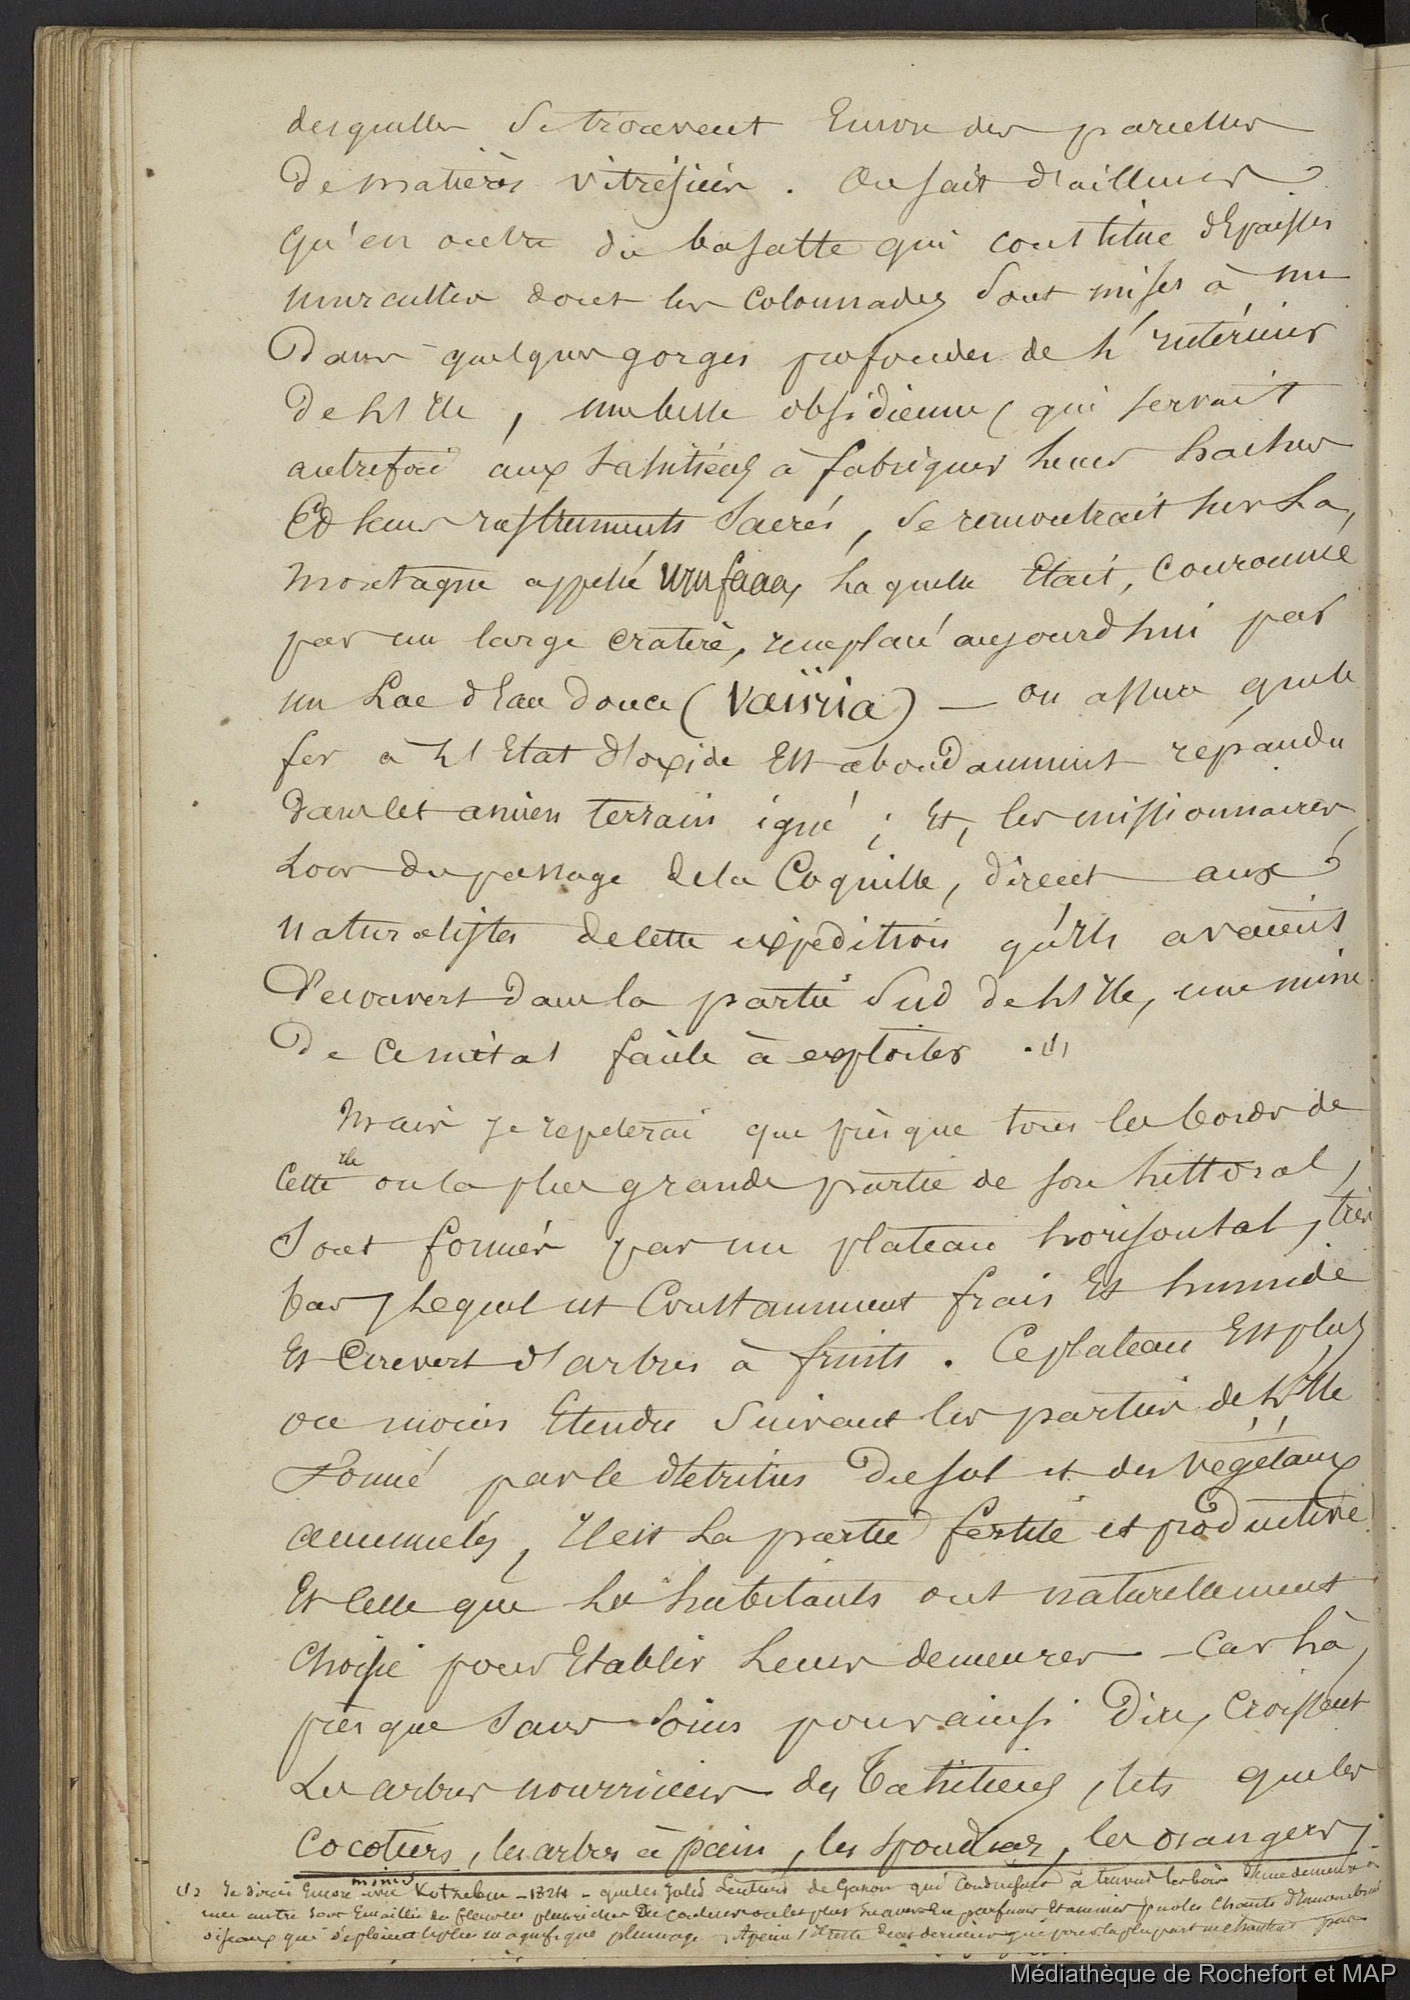 desquelles se trouvent Encore des parcelles
de matières vitrifiées. On sait d'ailleurs
qu'en outre du basalte qui constitue d'Epaisses
murailles dont les colonnades sont mises à nu
Dans quelques gorges profondes de l'intérieur
de l'Ile, une belle obsidienne, qui servait
autrefois aux tahitiens à fabriquer leurs haches
Et leurs instruments sacrés, se rencontrait sur La
montagne appelé urufaaa, laquelle Etait, Couronnée
par un large cratère, remplacé aujourd'hui par
un Lac d'Eau Douce (Vaïiria) — on assure que le
fer à l'Etat d'oxide Est abondamment répandu
dans cet ancien terrain igné; Et, les missionnaires,
Lors du passage de la Coquille, dirent aux
naturalistes de cette expédition qu'ils avaient
Découvert dans la partie Sud de l'Ile, une mine
De ce métal facile à exploiter. (1)
Mais je répéterai que presque tous les bords de
Cette Ile ou la plus grande partie de son littoral,
Sont formés par un plateau horisontal, très
bas, Lequel est Constamment frais Et humide
Et Couvert d'arbres à fruits. Ce plateau Est plus
ou moins Etendu Suivant les parties de l'Ile
Formé par le detritus du sol et des végétaux
accumulés, Il est La partie fertile et productive
Et Celle que les habitants ont naturellement
Choisie pour Etablir Leurs demeures — Car là,
presque sans soins pour ainsi Dire, Croissent
Les arbres nourriciers des Tahitiens, tels que les
Cocotiers, les arbres à pain, les spondias, les orangers,
(1) Je dirai Encore Kotzebue — 1824 — que les jolis Sentiers de Gazon qui Conduisent à travers les bois d'une demeure à
une autre sont Emaillés de fleurs les plus riches De Couleurs
oiseaux qui déploient le plus magnifique plumage
Médiathèque de Rochefort et MAP